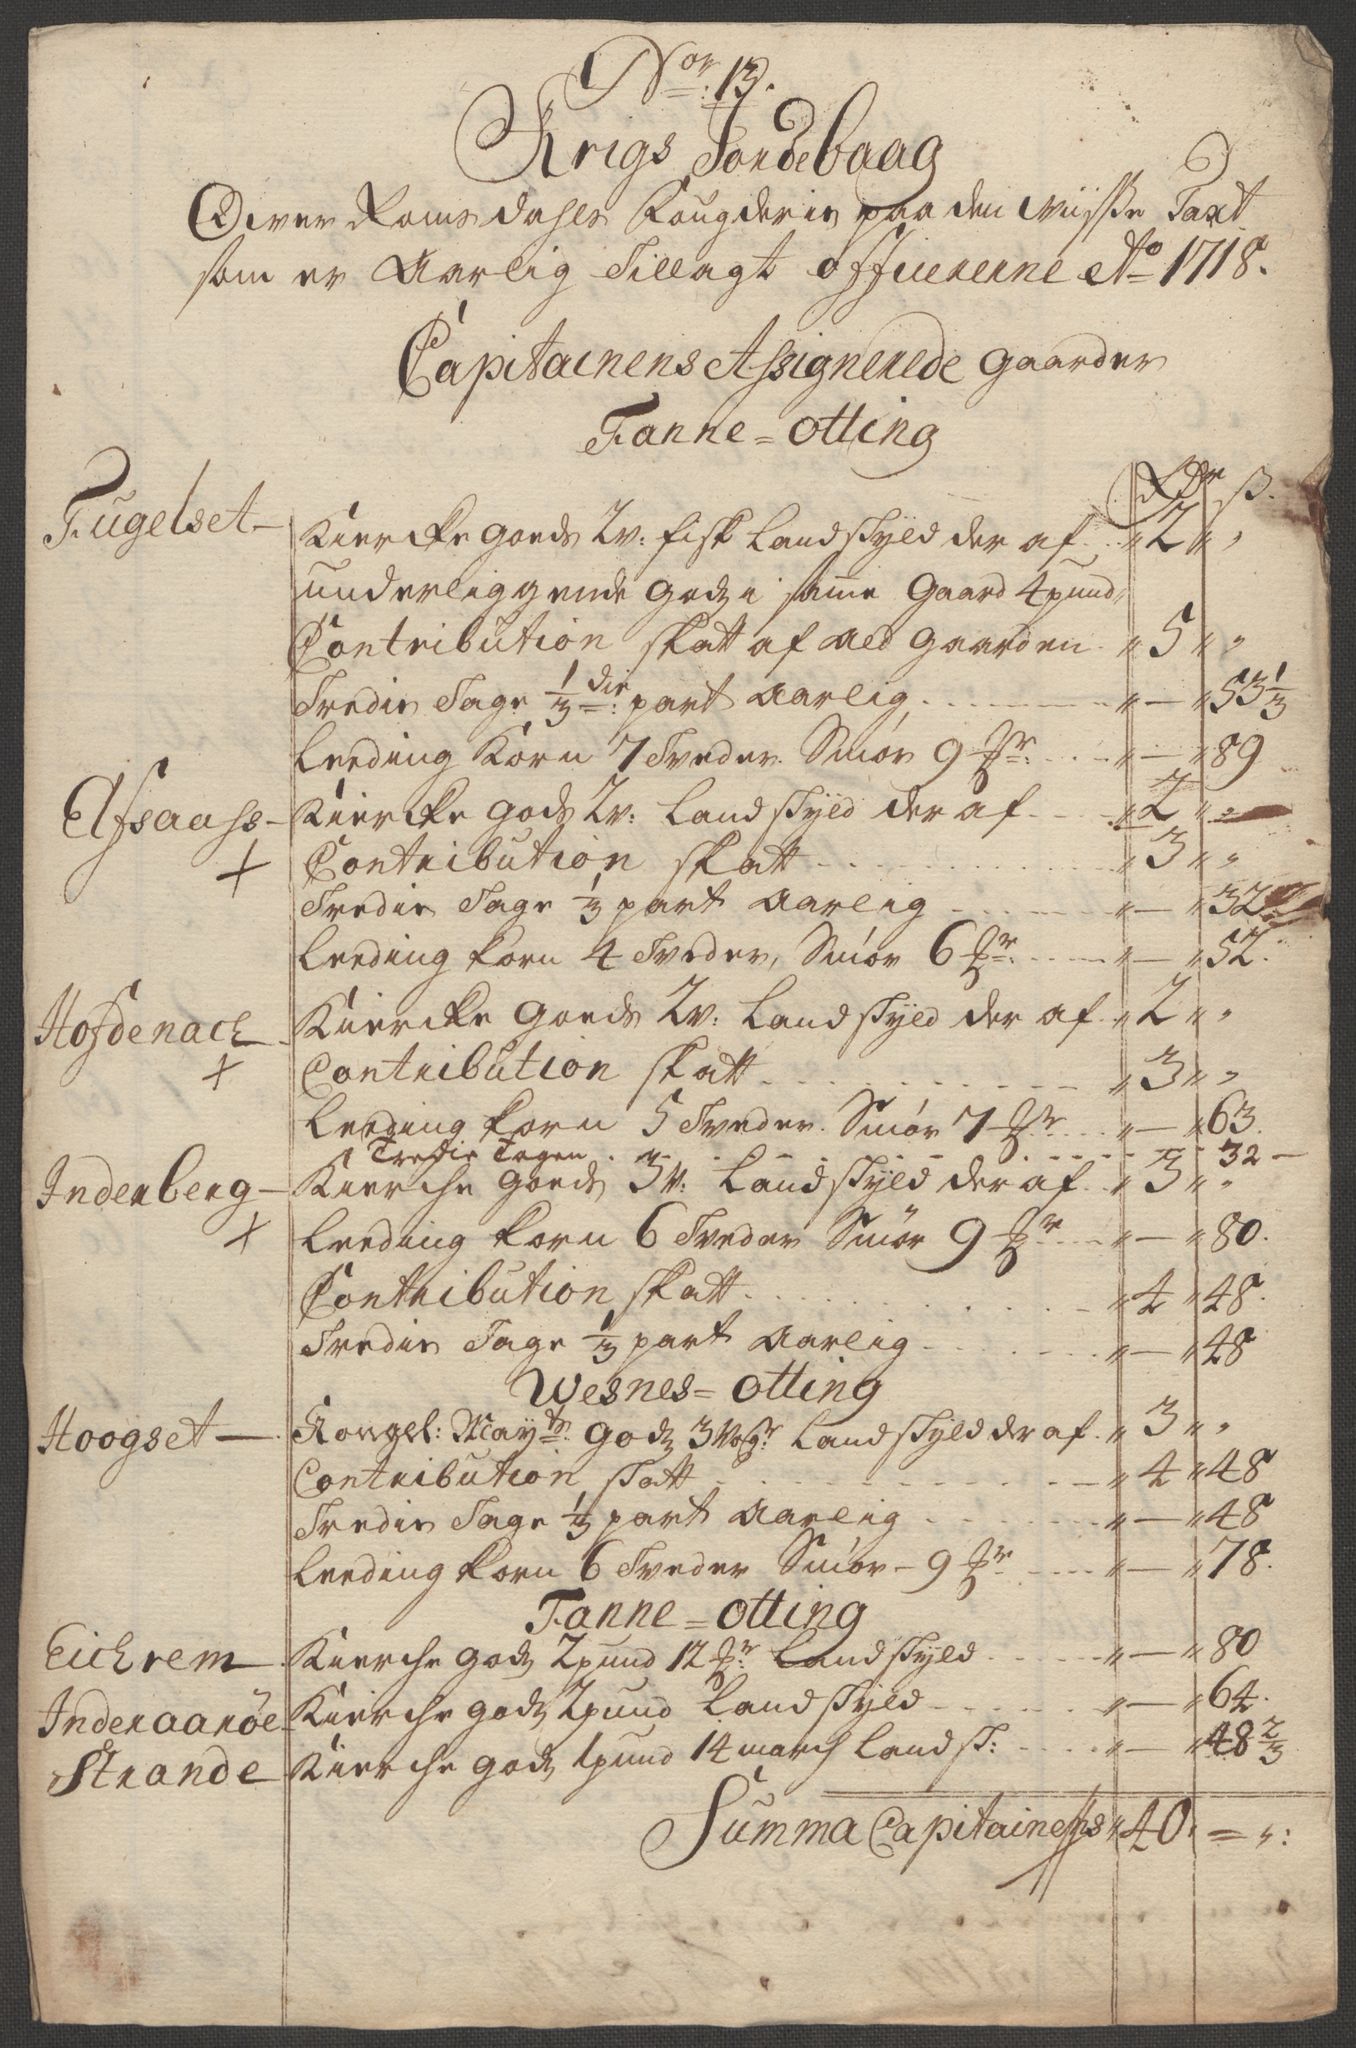 Nor: 13.
Krigs Jordebaag
Over Romsdahls Fougderie paa den wiisse Taxt
som er Aarlig Tillagt officererne Ao 1718.
Capitainens Assignerede gaarder
Fanne=otting
Rdr ß.
Fugelset— Kiercke goeds 2v: fisk Landskyld der af " 2 " "
underliggende godz i samme Gaard 4 pund
Contribution skatt af ald gaarden " 5 " "
Tredie Tage 1/3 die part Aarlig " — " 53 1/3
Leeding Korn 7 Sveder. Smør 9 " — " 89
Kiercke gods 2v: Landskyld der af " 2 " "
+ Contribution skatt " 3 " "
Tredie Tage 1/3 part Aarlig " — " 32
Leeding korn 4 Sveder, Smør 6 " — " 52.
Hofdenach Kiercke Goeds 2v: Landskyld der af " 2 " "
+ Contribution skatt " 3 " "
Leeding korn 5 Sveder. Smør 7 " — " 63.
Tredie Tagen 32 —
Inderberg— Kierche goeds 3v: Landskyld der af " 3 " "
+ Leeding korn 6 Sveder Smør 9 " — " 80.
Contribution skatt " 4 " 48.
Tredie Tage 1/3 part Aarlig " — " 48
Wesnes=otting
Hoogset— Kongel: Mayts godz 3 Landskyld der af " 3 " "
Contribution skatt " 4 " 48
Tredie Tage 1/3 part Aarlig " — " 48
Leeding korn 6 Sveder Smør - 9 " — " 78.
Fanne=otting
Eichrem— Kierche godz 2 pund 12 Landskyld " — " 80
Inderaarøe Kierche godz 2 pund Landskyld " — " 64.
Strande— Kierche godz 1 pund 14 march Landsk: " — " 48 2/3
Summa Capitainens " 40. = ":